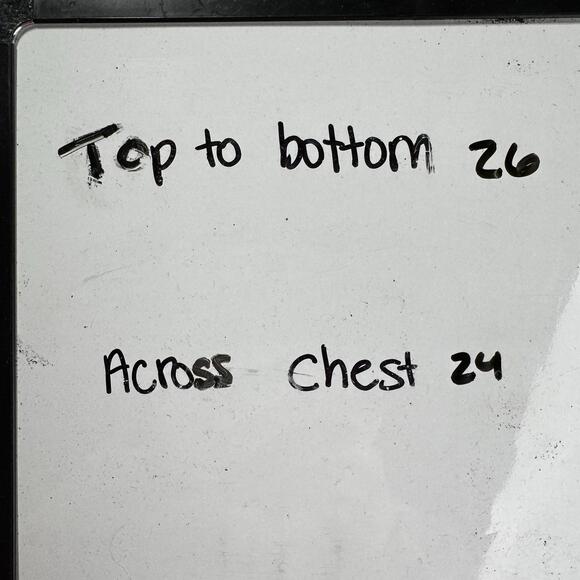 Top to bottom 26
Across Chest 24